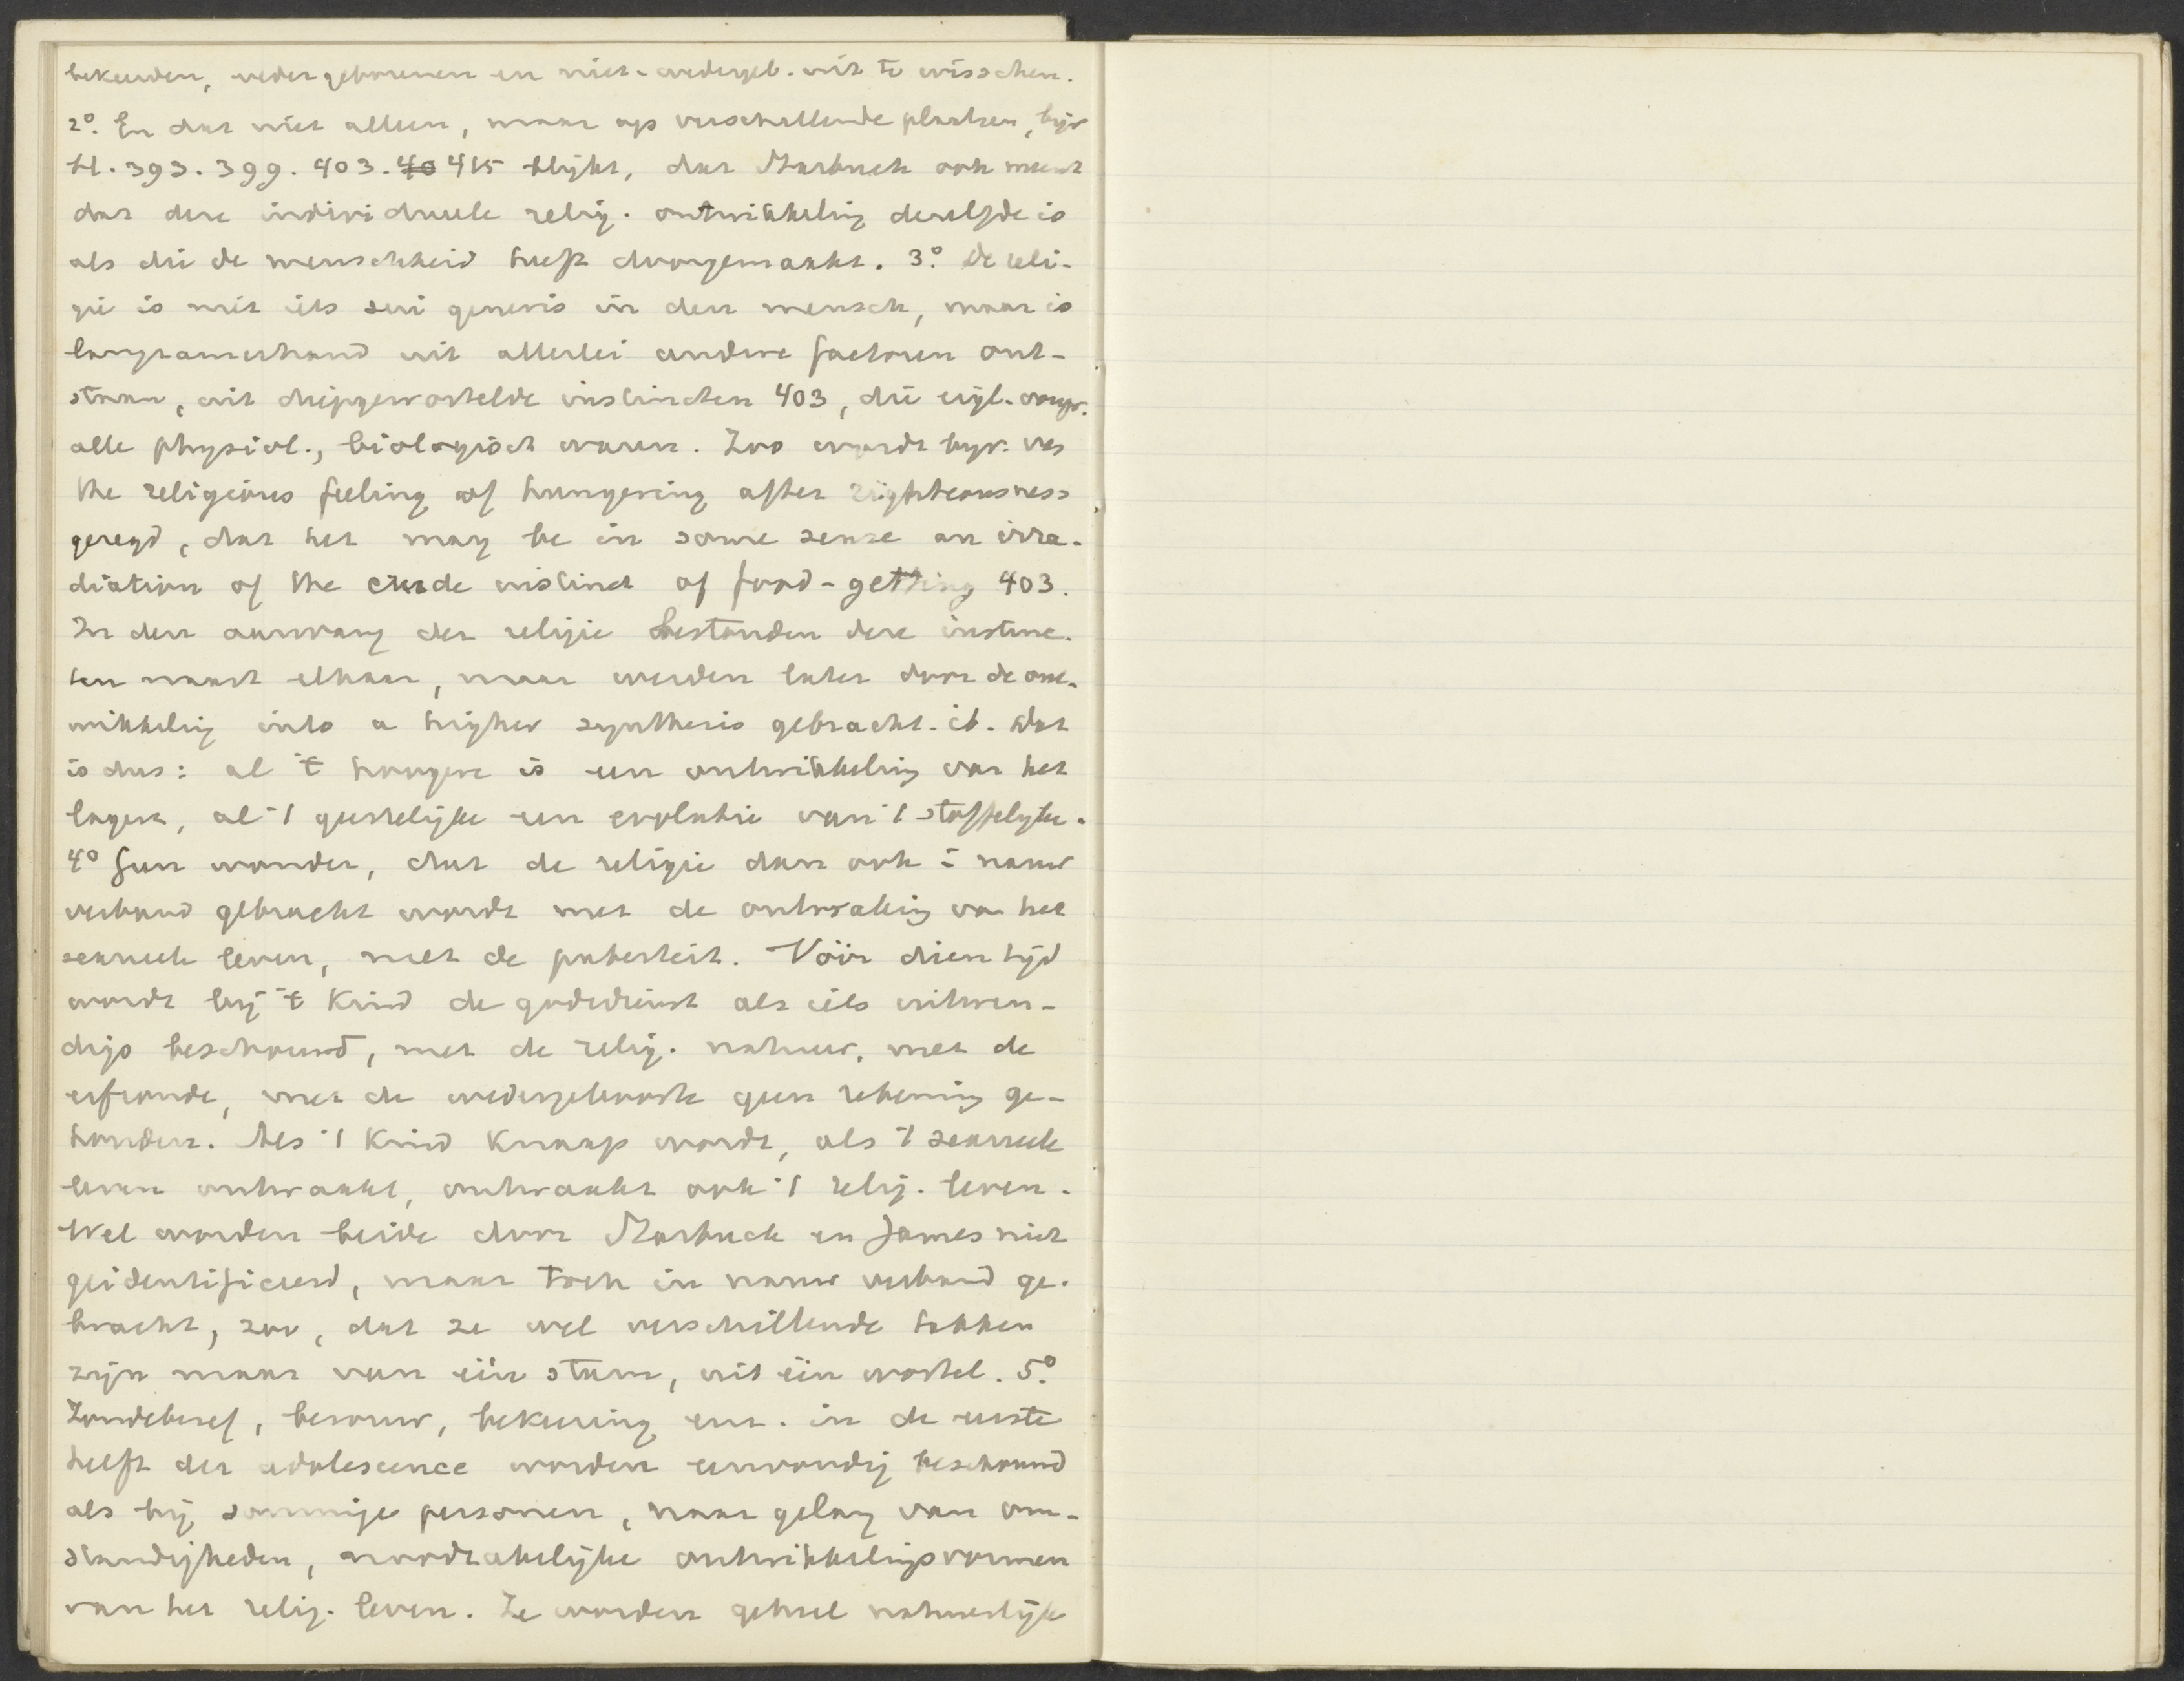 bekeerden, wedergeborenen en niet-wedergeb. uit te wisschen.
2o. En dat niet alleen, maar op verschillende plaatsen, bijv
bl. 393. 399. 403. 40 415 blijkt, dat Starbuck ook meent
dat deze individueele relig. ontwikkeling dezelfde is
als die de menschheid heeft doorgemaakt. 3o. De reli-
gie is niet iets sui generis in den mensch, maar is
langzamerhand uit allerlei andere factoren ont-
staan, uit diepgewortelde instincten 403, die eigl. oorspr.
alle physiol., biologisch waren. Zoo wordt bijv. van
the religious feeling of hungering after righteousness
gezegd, dat het may be in some sense an irra-
diation of the crude instinct of food-getting 403.
In den aanvang der religie bestonden deze instinc-
ten naast elkaar, maar werden later door de ont-
wikkeling into a higher synthesis gebracht. ib. Dat
is dus: al 't hoogere is een ontwikkeling van het
lagere, al 't geestelijke een evolutie van 't stoffelijke.
4o Geen wonder, dat de religie dan ook i nauw
verband gebracht wordt met de ontwaking van het
sexueele leven, met de puberteit. Vóór dien tijd
wordt bij 't kind de godsdienst als iets uitwen-
digs beschouwd, met de relig. natuur, met de
erfzonde, met de wedergeboorte geen rekening ge-
houden. Als 't kind knaap wordt, als 't sexueele
leven ontwaakt, ontwaakt ook 't relig. leven.
Wel worden beide door Starbuck en James niet
geidentificeerd, maar toch in nauw verband ge-
bracht, zoo, dat ze wel verschillende takken
zijn maar van één stam, uit één wortel. 5o.
Zondebesef, berouw, bekeering enz. in de eerste
helft der adolescence worden eenvoudig beschouwd
als bij sommige personen, naar gelang van om-
standigheden, noodzakelijke ontwikkelingsvormen
van het relig. leven. Ze worden geheel natuurlijk